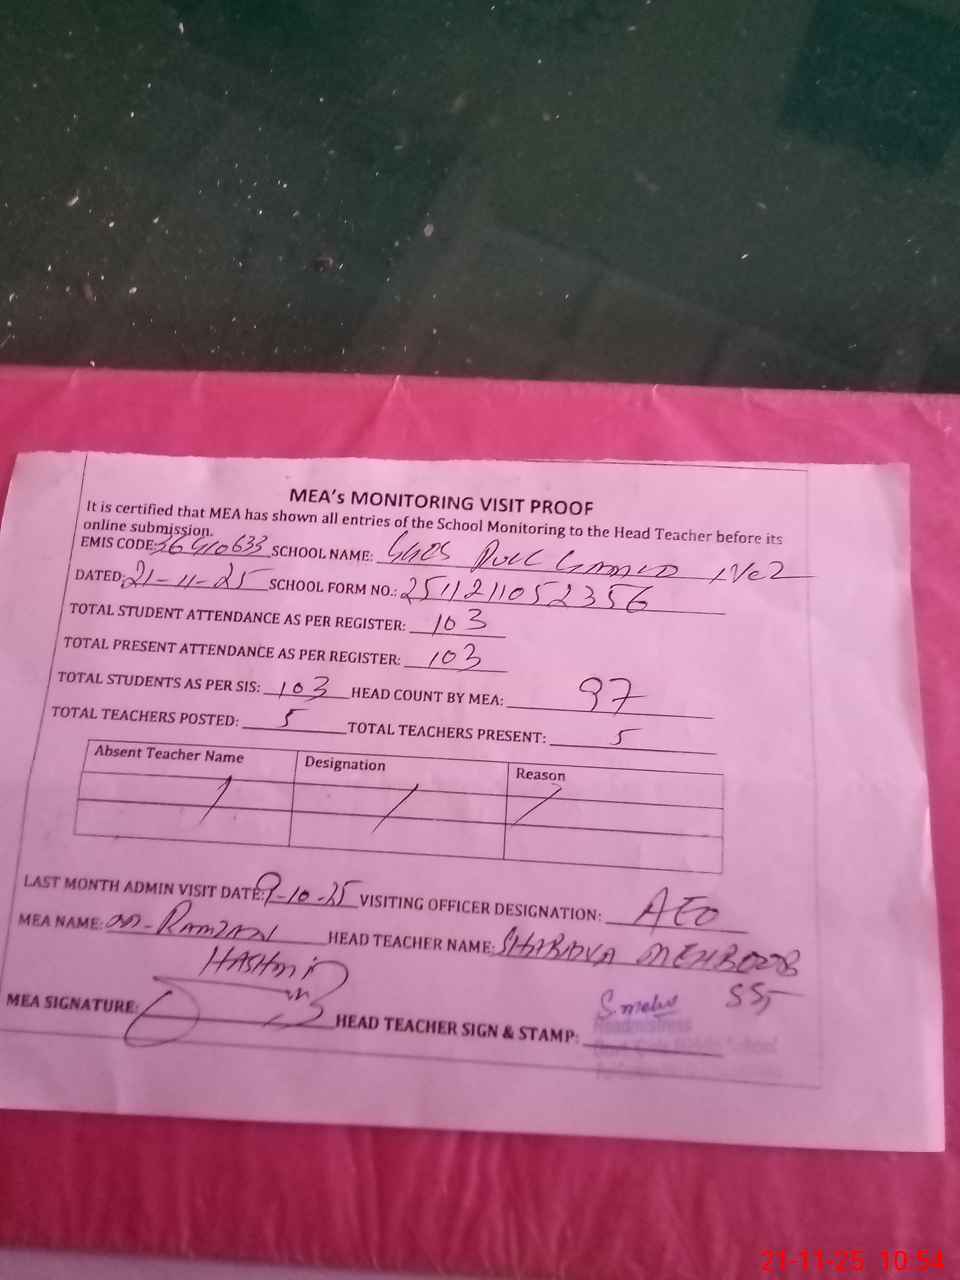 MEA's MONITORING VISIT PROOF
It is certified that MEA has shown all entries of the School Monitoring to the Head Teacher before its
online submission.
EMIS CODE: SCHOOL NAME: No2
DATED: 21-11-25 SCHOOL FORM NO.: 2511211052356
TOTAL STUDENT ATTENDANCE AS PER REGISTER: 103
TOTAL PRESENT ATTENDANCE AS PER REGISTER: 103
TOTAL STUDENTS AS PER SIS: 103 HEAD COUNT BY MEA: 97
TOTAL TEACHERS POSTED: 5 TOTAL TEACHERS PRESENT: 5
Absent Teacher Name Designation Reason
LAST MONTH ADMIN VISIT DATE: 9-10-25 VISITING OFFICER DESIGNATION: AEO
MEA NAME: M-RAMZAN HEAD TEACHER NAME: MEHBOOB
HASHMI SS,
MEA SIGNATURE: HEAD TEACHER SIGN & STAMP:
Headmistress
School
21-11-25 10:54